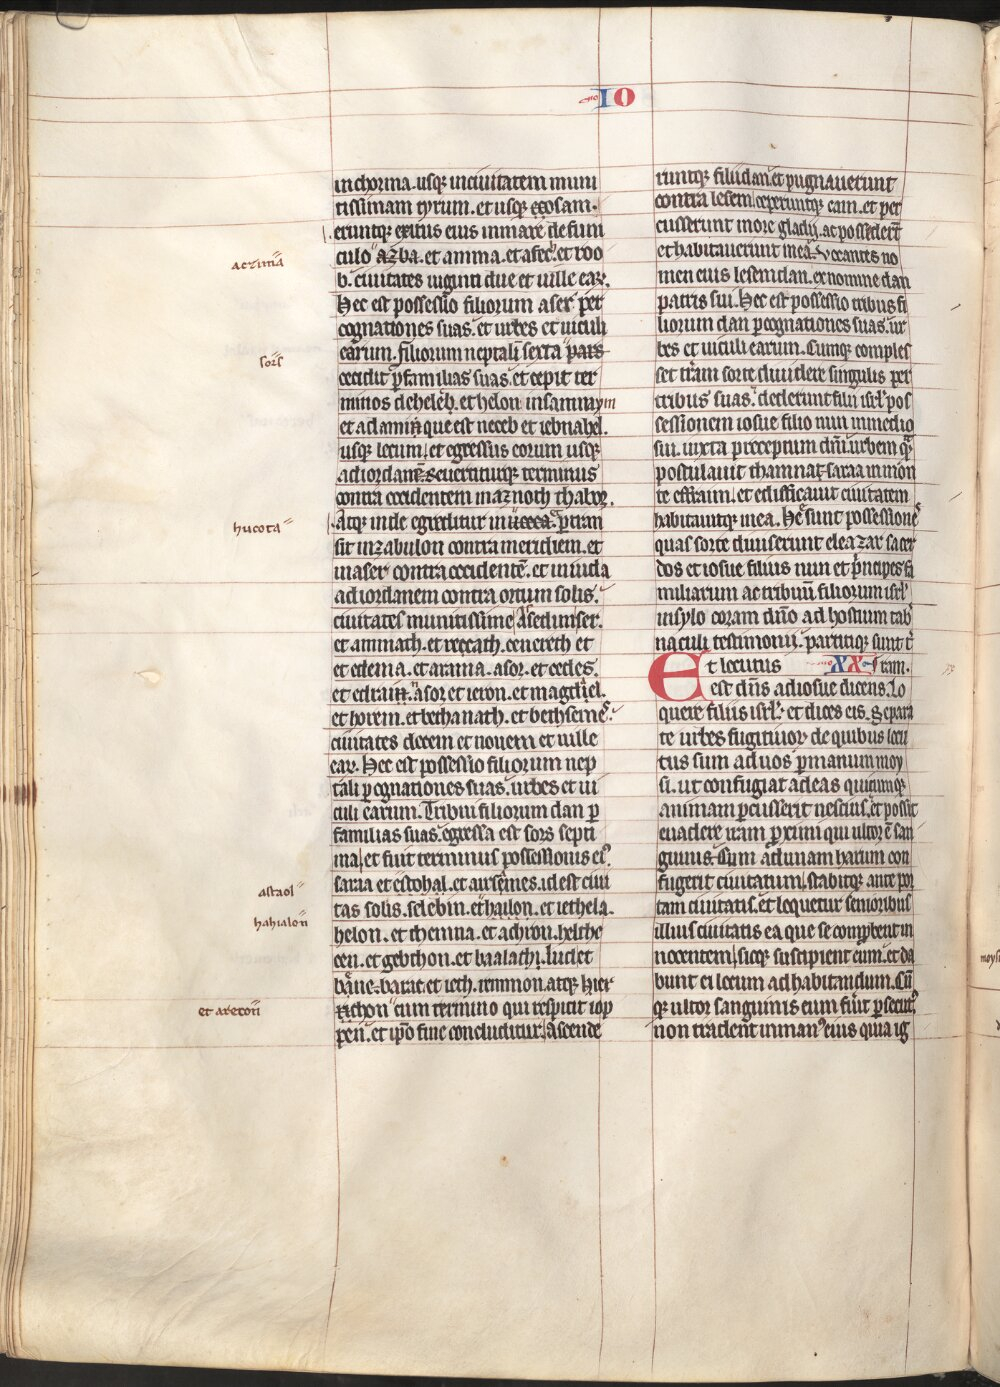 IO
in chorma. usq; in ciuitatem muni
tissimam tyrum. et usq; egosam.
eruntq; exitus eius in mare de funi
culo azba. et amma. et afec. et roo
b. ciuitates uiginti due et uille eaꝝ.
Hec est possessio filiorum aser per
cognationes suas. et urbes et uiculi
earum. filiorum neptalī sexta pars
cecidit ꝑ familias suas. et cepit ter
minos de heleb. et helon in sannaym
et adamī que est neceb et iebnahel.
usq; lecum. et egressus eorum usq;
ad iordanē. Reuertiturq; terminus
contra occidentem in aznoth thabor.
Atq; inde egreditur in ꝑtran
sit in zabulon contra meridiem. et
in aser contra occidentē. et in iuda
ad iordanem contra ortum solis.
ciuitates munitissime Asedim ser.
et ammath. et reccath. cenereth et
et edema. et arama. asor. et cedes.
et edrain. asor et ieron. et magdiel.
et horem. et bethanath. et bethsemeˢ.
ciuitates decem et nouem et uille
eaꝝ. Hec est possessio filiorum nep
tali ꝑ cognationes suas. urbes et ui
culi earum. Tribui filiorum dan ꝑ
familias suas. egressa est sors septi
ma. et fuit terminus possessionis eiꝰ.
saraa et estohal. et airsemes. id est ciui
tas solis. selebin. et hailon. et iethela.
helon. et themna. et achron. helthe
cen. et gebthon. et baalath. Iud et
bane. barac. et ieth. remmon. atq; hier
richon cum termino qui respicit iop
pen. et ipo fine concluditur. Ascende
acrima
sors
hucota
astaol
hahialon
et arecon
runtq; filii dan. et pugnauerunt
contra lesem ceperuntq; eam. et per
cusserunt in ore gladii. ac possederūt
et habitauerunt in ea. Vocantes no
men eius lesemdan. ex nomine dan
patris sui. Hec est possessio tribus fi
liorum dan ꝑ cognationes suas. ur
bes et uiculi earum. Cumq; comples
set tram sorte diuidere singulis per
tribus suas. dederunt filii isrl pos
sessionem iosue filio nun in medio
sui. iuxta preceptum dni. urbem qͣ
postulauit thamnat saraa in mon
te effraim. et edificauit ciuitatem
habitauitq; in ea. Hē sunt possessioneˢ
quas sorte diuiserunt eleazar sacer
dos et iosue filius nun et pncipes fa
miliarum ac tribuū filiorum isrl
in sylo coram dno ad hostium tab
naculi testimonii. partitiq; sunt t
ram. XX
Et locutus
est dns ad iosue dicens. Lo
quere filiis isrl. et dices eis. Separa
te urbes fugitiuoꝝ de quibus locu
tus sum ad uos ꝑ manum moy
si. ut confugiat ad eas quicumq;
animam ꝑcusserit nescius. et possit
euadere iram ꝓximi qui ultor ē san
guinis. Cum ad unam harum con
fugerit ciuitatum. stabitq; ante por
tam ciuitatis. et loquetur senioribus
illius ciuitatis ea que se comꝓbent in
nocentem sicq; suscipient eum. et da
bunt ei locum ad habitandum. Cū
q; ultor sanguinis eum fūit ꝑsecutꝰ
non tradent in manꝰ eius quia ig